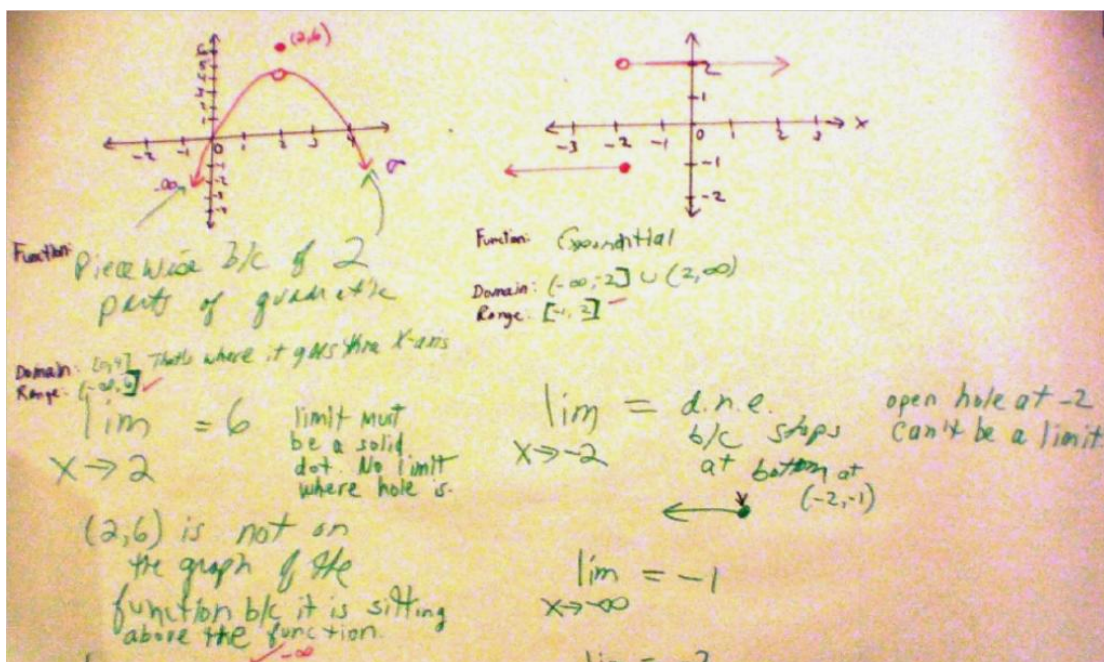 (2,6)
-2 -1 0 1 2 3 4
-∞
-3 -2 -1 0 1 2 3 x
2
1
-1
-2
Function: Piecewise b/c of 2
parts of quadratic
Domain: That's where it goes thru X-axis
Range: (-∞, 6]
lim = 6
x→2
limit must
be a solid
dot. No limit
where hole is.
(2,6) is not on
the graph of the
function b/c it is sitting
above the function.
-∞
Function: Exponential
Domain: (-∞,-2] ∪ (2,∞)
Range: [-1, 2]
lim = d.n.e.
x→-2
b/c stops
at bottom at
(-2,-1)
open hole at -2
can't be a limit
lim = -1
x→-∞